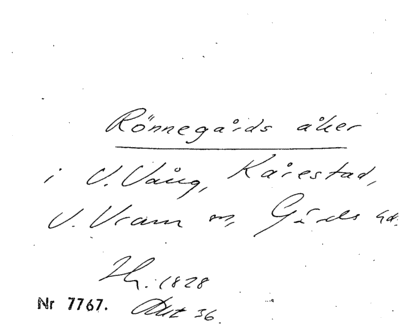 Rönnegårds åker
i V. Vång, Kårestad,
V. Vram sn, Gärds hd.
1828
Nr 7767. Akt 36.